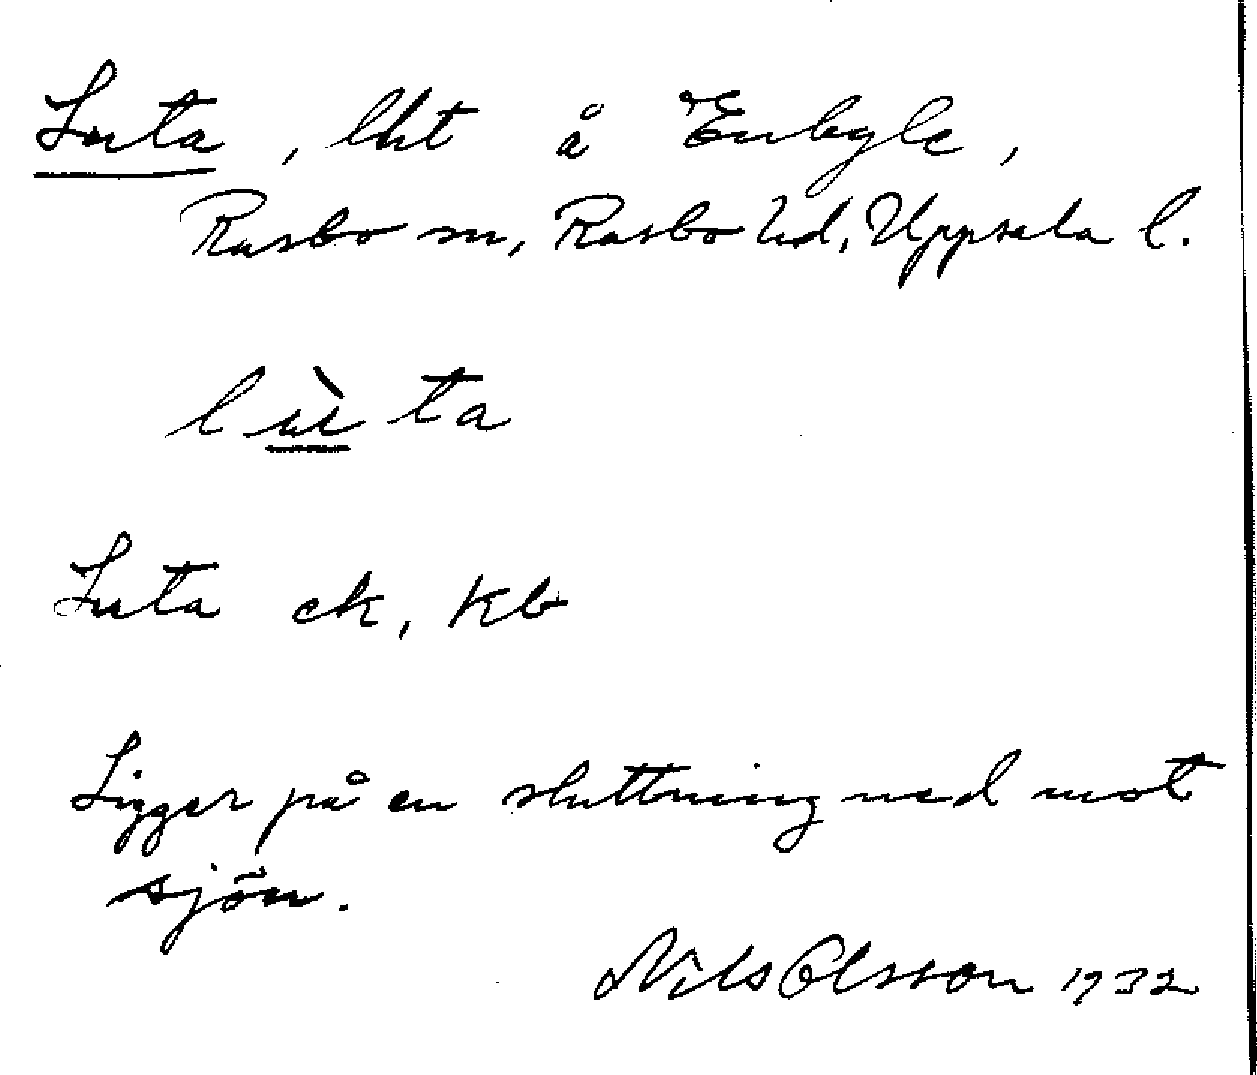 Luta, lht å Enbyle,
Rasbo sn, Rasbo hd, Uppsala l.
lùta
Luta ek, Kb
Ligger på en sluttning ned mot
sjön.
Nils Olsson 1932